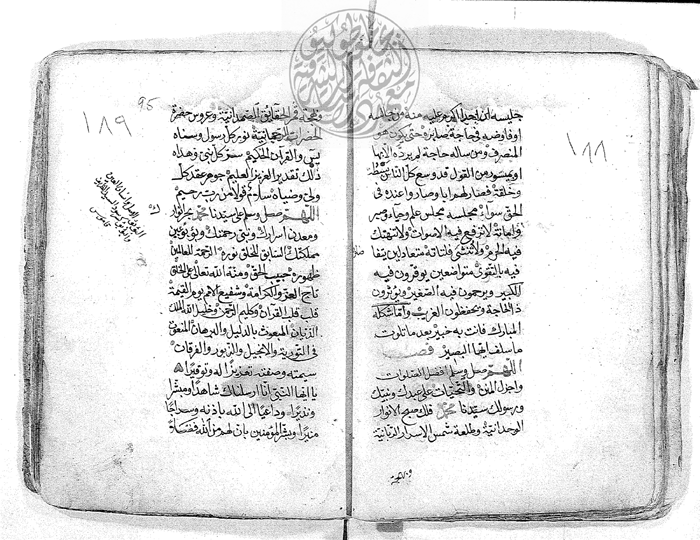 ١٨٨
جليسه ان احدا اكرم عليه منه من جالسه
او فاوضه في حاجة صابره حتى يكون هو
المنصرف ومن ساله حاجة لم يرده الا بها
او بميسور من القول قد وسع كل الناس بسطه
وخلقه فصار لهم ابا وصاروا عنده في
الحق سواء مجلسه مجلس علم وحياء وصبر
وامانة لا ترفع فيه الاصوات ولا تنتهك
فيه الحرم ولا تنثى فلتاته متعادلين
فيه بالتقوى متواضعين يوقرون فيه
الكبير ويرحمون فيه الصغير ويؤثرون
ذا الحاجة ويحفظون الغريب واما شكله
المبارك فانت به خبير بعد ما تلوت
ما سلف ايها البصير فصل
اللهم صل وسلم افضل الصلوات
واجزل المنن والتحيات على عبدك ونبيك
ورسولك سيدنا محمد فلك صبح الانوار
الوحدانية وطلعة شمس الاسرار الربانية
وبهجة
١٨٩
95
وبهجة قمر الحقايق الصمدانية وعروس حضرة
الحضرات الرحمانية نور كل رسول وسناه
يس والقرآن الحكيم سر كل نبي وهداه
ذلك تقدير العزيز العليم جوهر عقد كل
ولي وضياه سلام قولا من رب رحيم
اللهم صل وسلم على سيدنا محمد بحر انوارك
ومعدن اسرارك ونبي رحمتك
مملكتك السابق للخلق نوره الرحمة للعالمين
ظهوره حبيب الحق ومنة الله تعالى على الخلق
تاج العز والكرامة وشفيع الامم يوم القيمة
قلب قلب القرآن وكليم الرحمن وخليل الملك
الديان المبعوث بالدليل والبرهان المنعوت
في التورية والانجيل والزبور والفرقان
سيمته وصفته تعزيزا له وتوقيرا
يا ايها النبي انا ارسلناك شاهدا ومبشرا
ونذيرا وداعيا الى الله باذنه وسراجا
منيرا وبشر المؤمنين بان لهم من الله فضلا